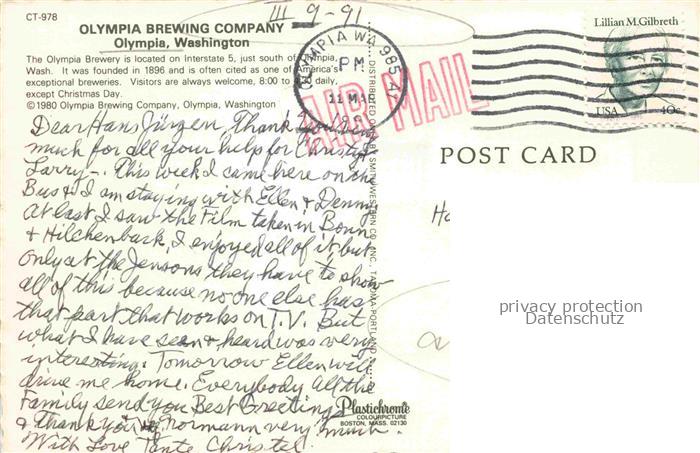 CT-978
III 9-91
OLYMPIA BREWING COMPANY
Olympia, Washington
The Olympia Brewery is located on Interstate 5, just south of Olympia,
Wash. It was founded in 1896 and is often cited as one of America's
exceptional breweries. Visitors are always welcome, 8:00 to 4:30 daily,
except Christmas Day.
©1980 Olympia Brewing Company, Olympia, Washington
Dear Hans Jürgen, Thank you very
much for all your help for Christy &
Larry -. This week I came here on the
Bus & I am staying with Ellen & Denny
At last I saw the Film taken in Bonn
& Hilchenback, I enjoyed all of it, but
only at the Jensons they have to show
all of this because no one else has
that part that works on T.V. But
what I have seen & heard was very
interesting. Tomorrow Ellen will
drive me home. Everybody all the
Family send you Best Greetings
& Thank you Normann very much.
With Love Tante Christel
Plastichrome
COLOURPICTURE
BOSTON, MASS. 02130
DISTRIBUTED BY SMITH-WESTERN CO. INC., TACOMA-PORTLAND
OLYMPIA WA 985
PM
11 MAR
AIR MAIL
Lillian M. Gilbreth
USA 40c
POST CARD
Ha
privacy protection
Datenschutz